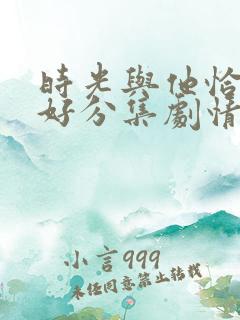 時光與他恰
好分集劇情
小言999
未经同意禁止转载